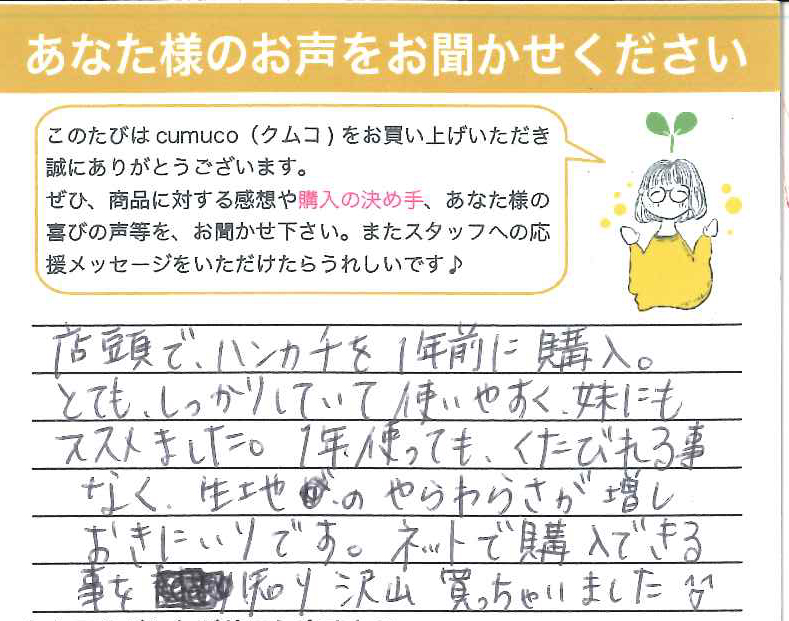 あなた様のお声をお聞かせください
このたびは cumuco（クムコ）をお買い上げいただき
誠にありがとうございます。
ぜひ、商品に対する感想や購入の決め手、あなた様の
喜びの声等を、お聞かせ下さい。またスタッフへの応
援メッセージをいただけたらうれしいです♪
店頭で、ハンカチを1年前に購入。
とても、しっかりしていて使いやすく、妹にも
ススメました。1年使っても、くたびれる事
なく、生地のやらわらさが増し
おきにいりです。ネットで購入できる
事を知り沢山買っちゃいました